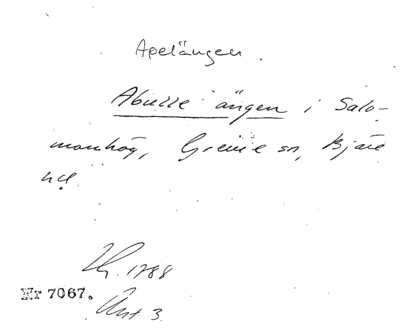 Apelängen.
Abulle ängen i Salo-
monhög, Grevie sn, Bjäre
hd.
1788
Nr 7067.
3.